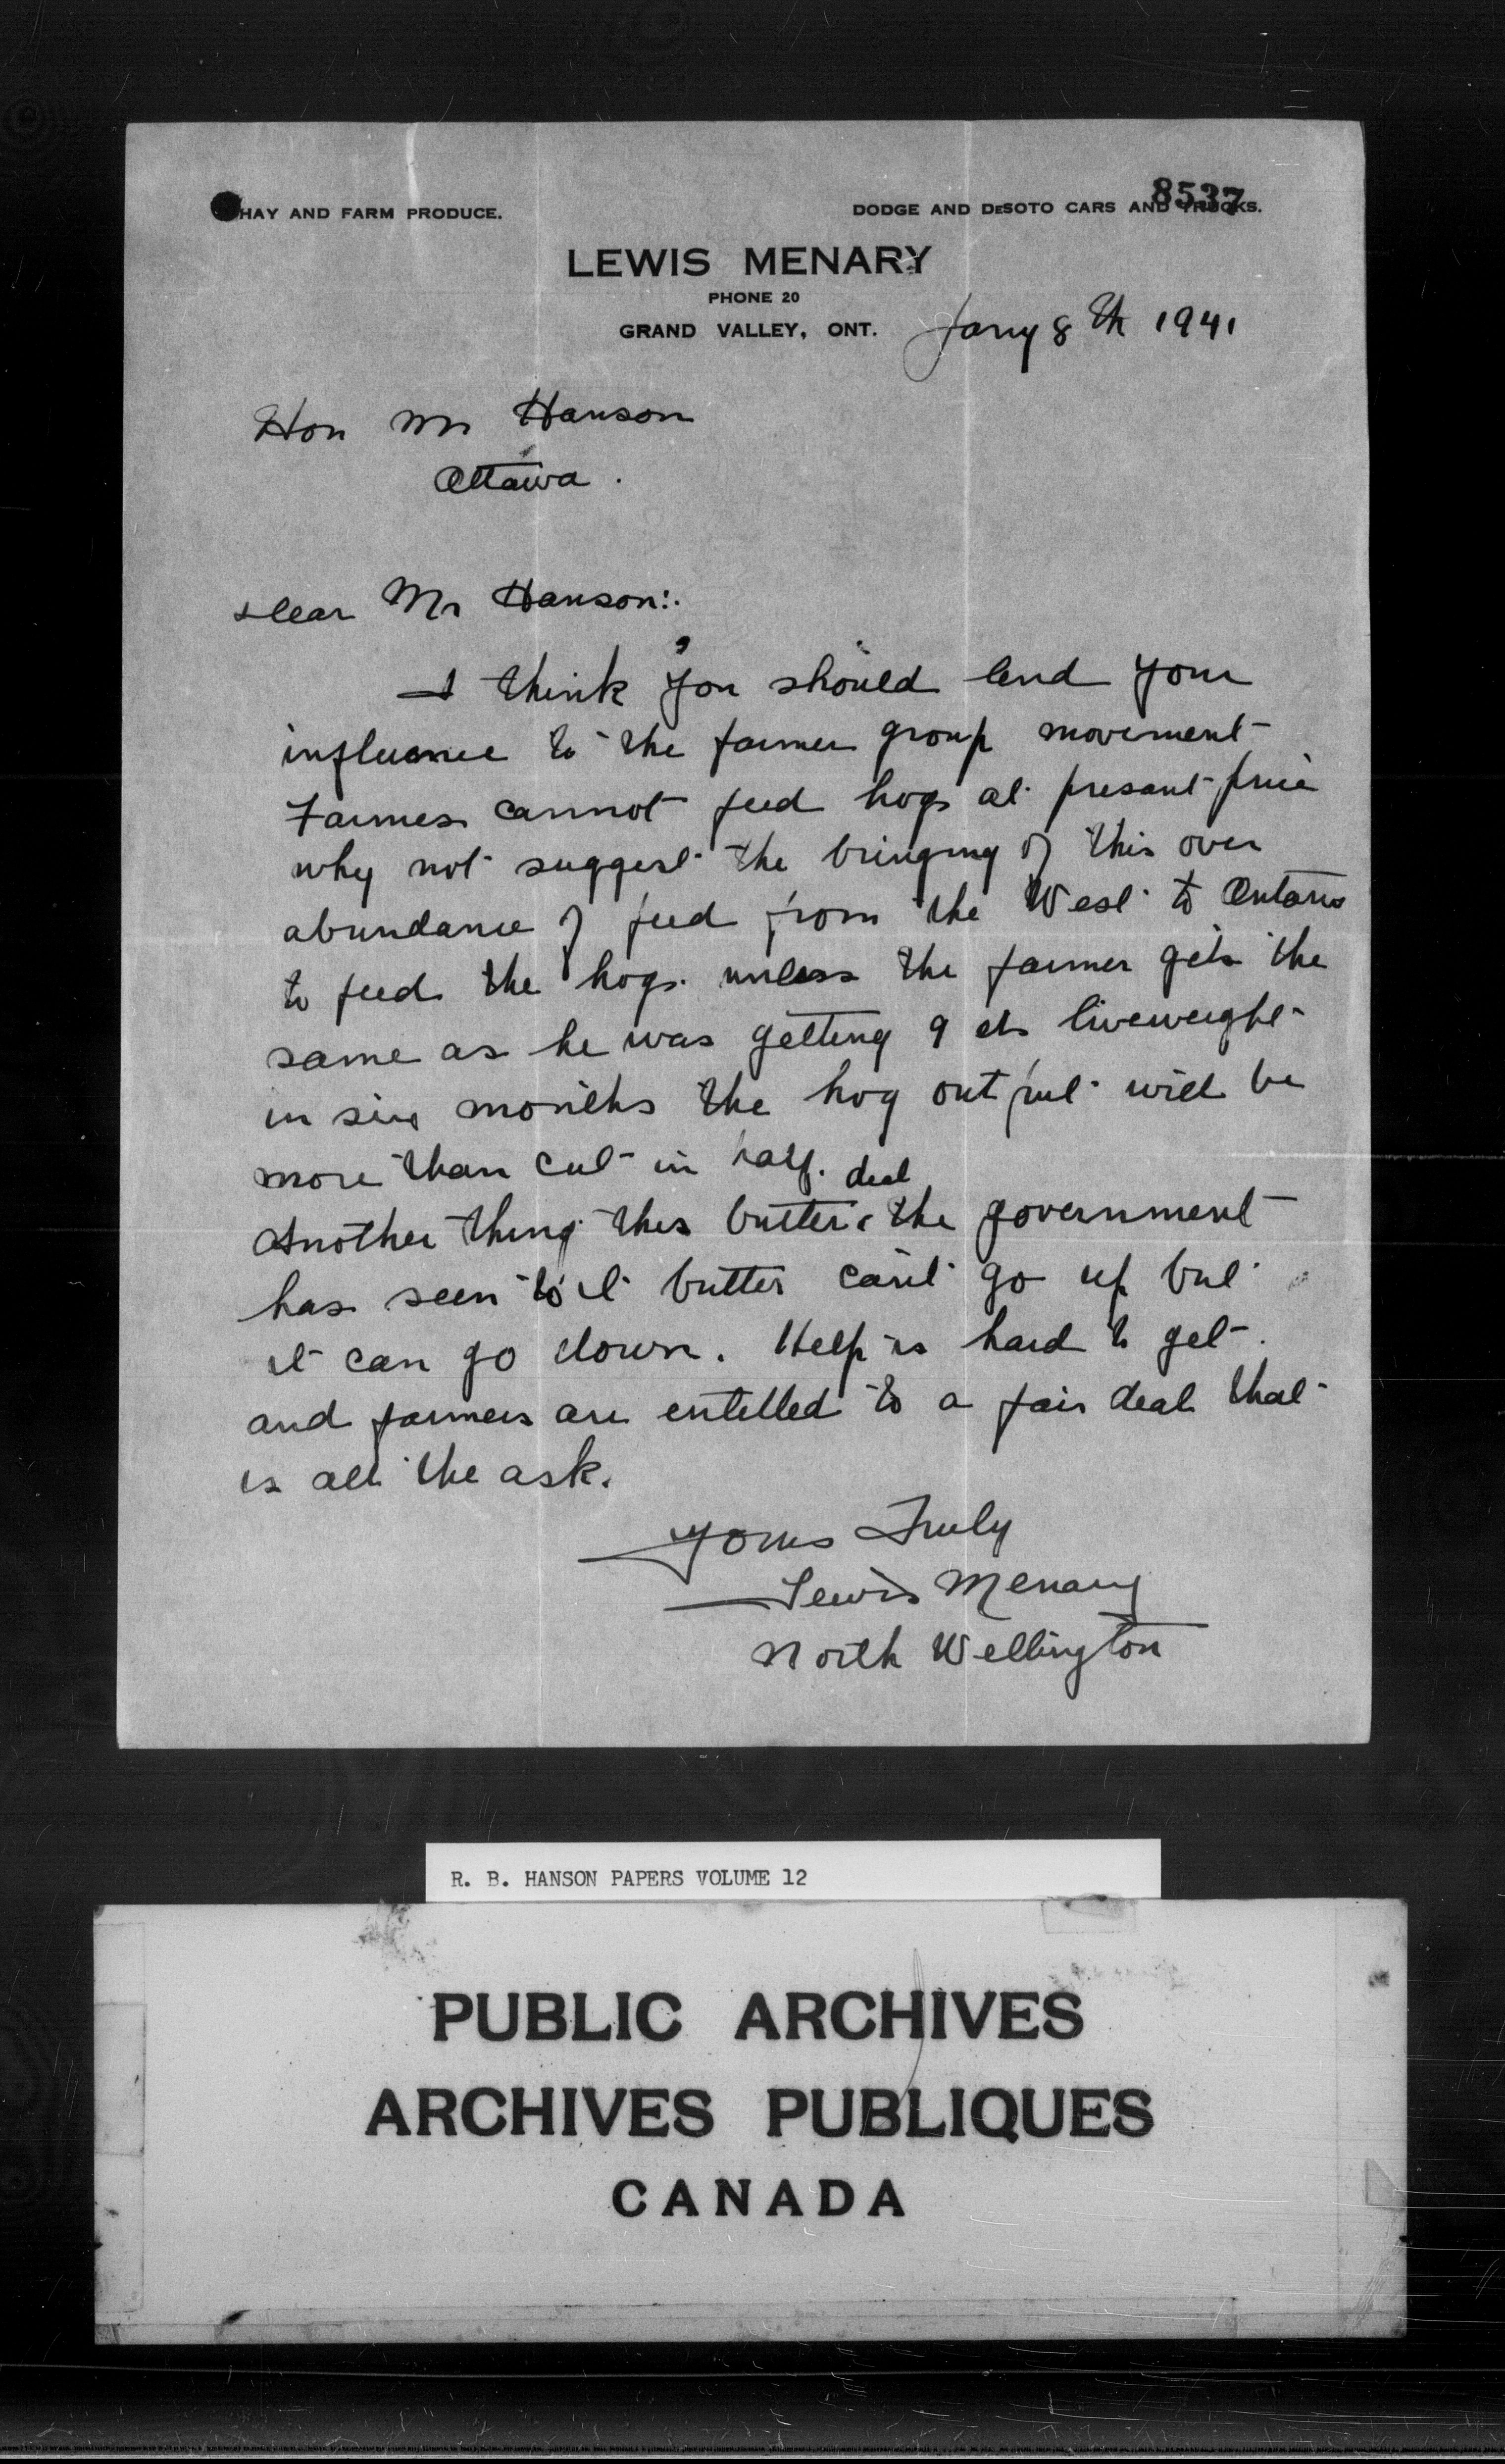 8537
HAY AND FARM PRODUCE.
DODGE AND DESOTO CARS AND TRUCKS.
LEWIS MENARY
PHONE 20
GRAND VALLEY, ONT.
Jany 8th 1941
Hon Mr Hanson
Ottawa.
Dear Mr Hanson:.
I think you should lend your
influence to the farmer group movement
Farmers cannot feed hogs at presant price
why not suggest the bringing of this over
abundance of feed from the West to Ontario
to feed the hogs. unless the farmer gets the
same as he was getting 9 cts liveweight
in six months the hog out put will be
more than cut in half.
Another thing this butter deal the government
has seen to it butter can't go up but
it can go down. Help is hard to get.
and farmers are entitled to a fair deal that
is all the ask.
Yours Truly
Lewis Menary
North Wellington
R. B. HANSON PAPERS VOLUME 12
PUBLIC ARCHIVES
ARCHIVES PUBLIQUES
CANADA